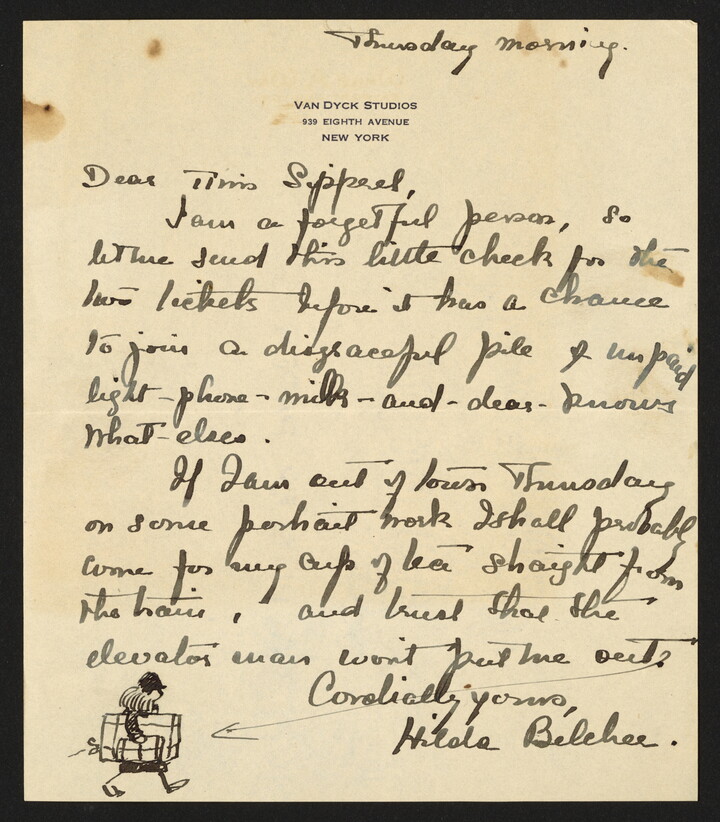 Thursday morning.
VAN DYCK STUDIOS
939 EIGHTH AVENUE
NEW YORK
Dear Miss Sipprel,
I am a forgetful person, so
let me send this little check for the
two tickets before it has a chance
to join a disgraceful pile of unpaid
light-phone-milk-and-dear-knows
what-elses.
If I am out of town Thursday
on some portrait work I shall probably
come for my cup of tea straight from
the train, and trust that the
elevator man won't put me out.
Cordially yours,
Hilda Belcher.